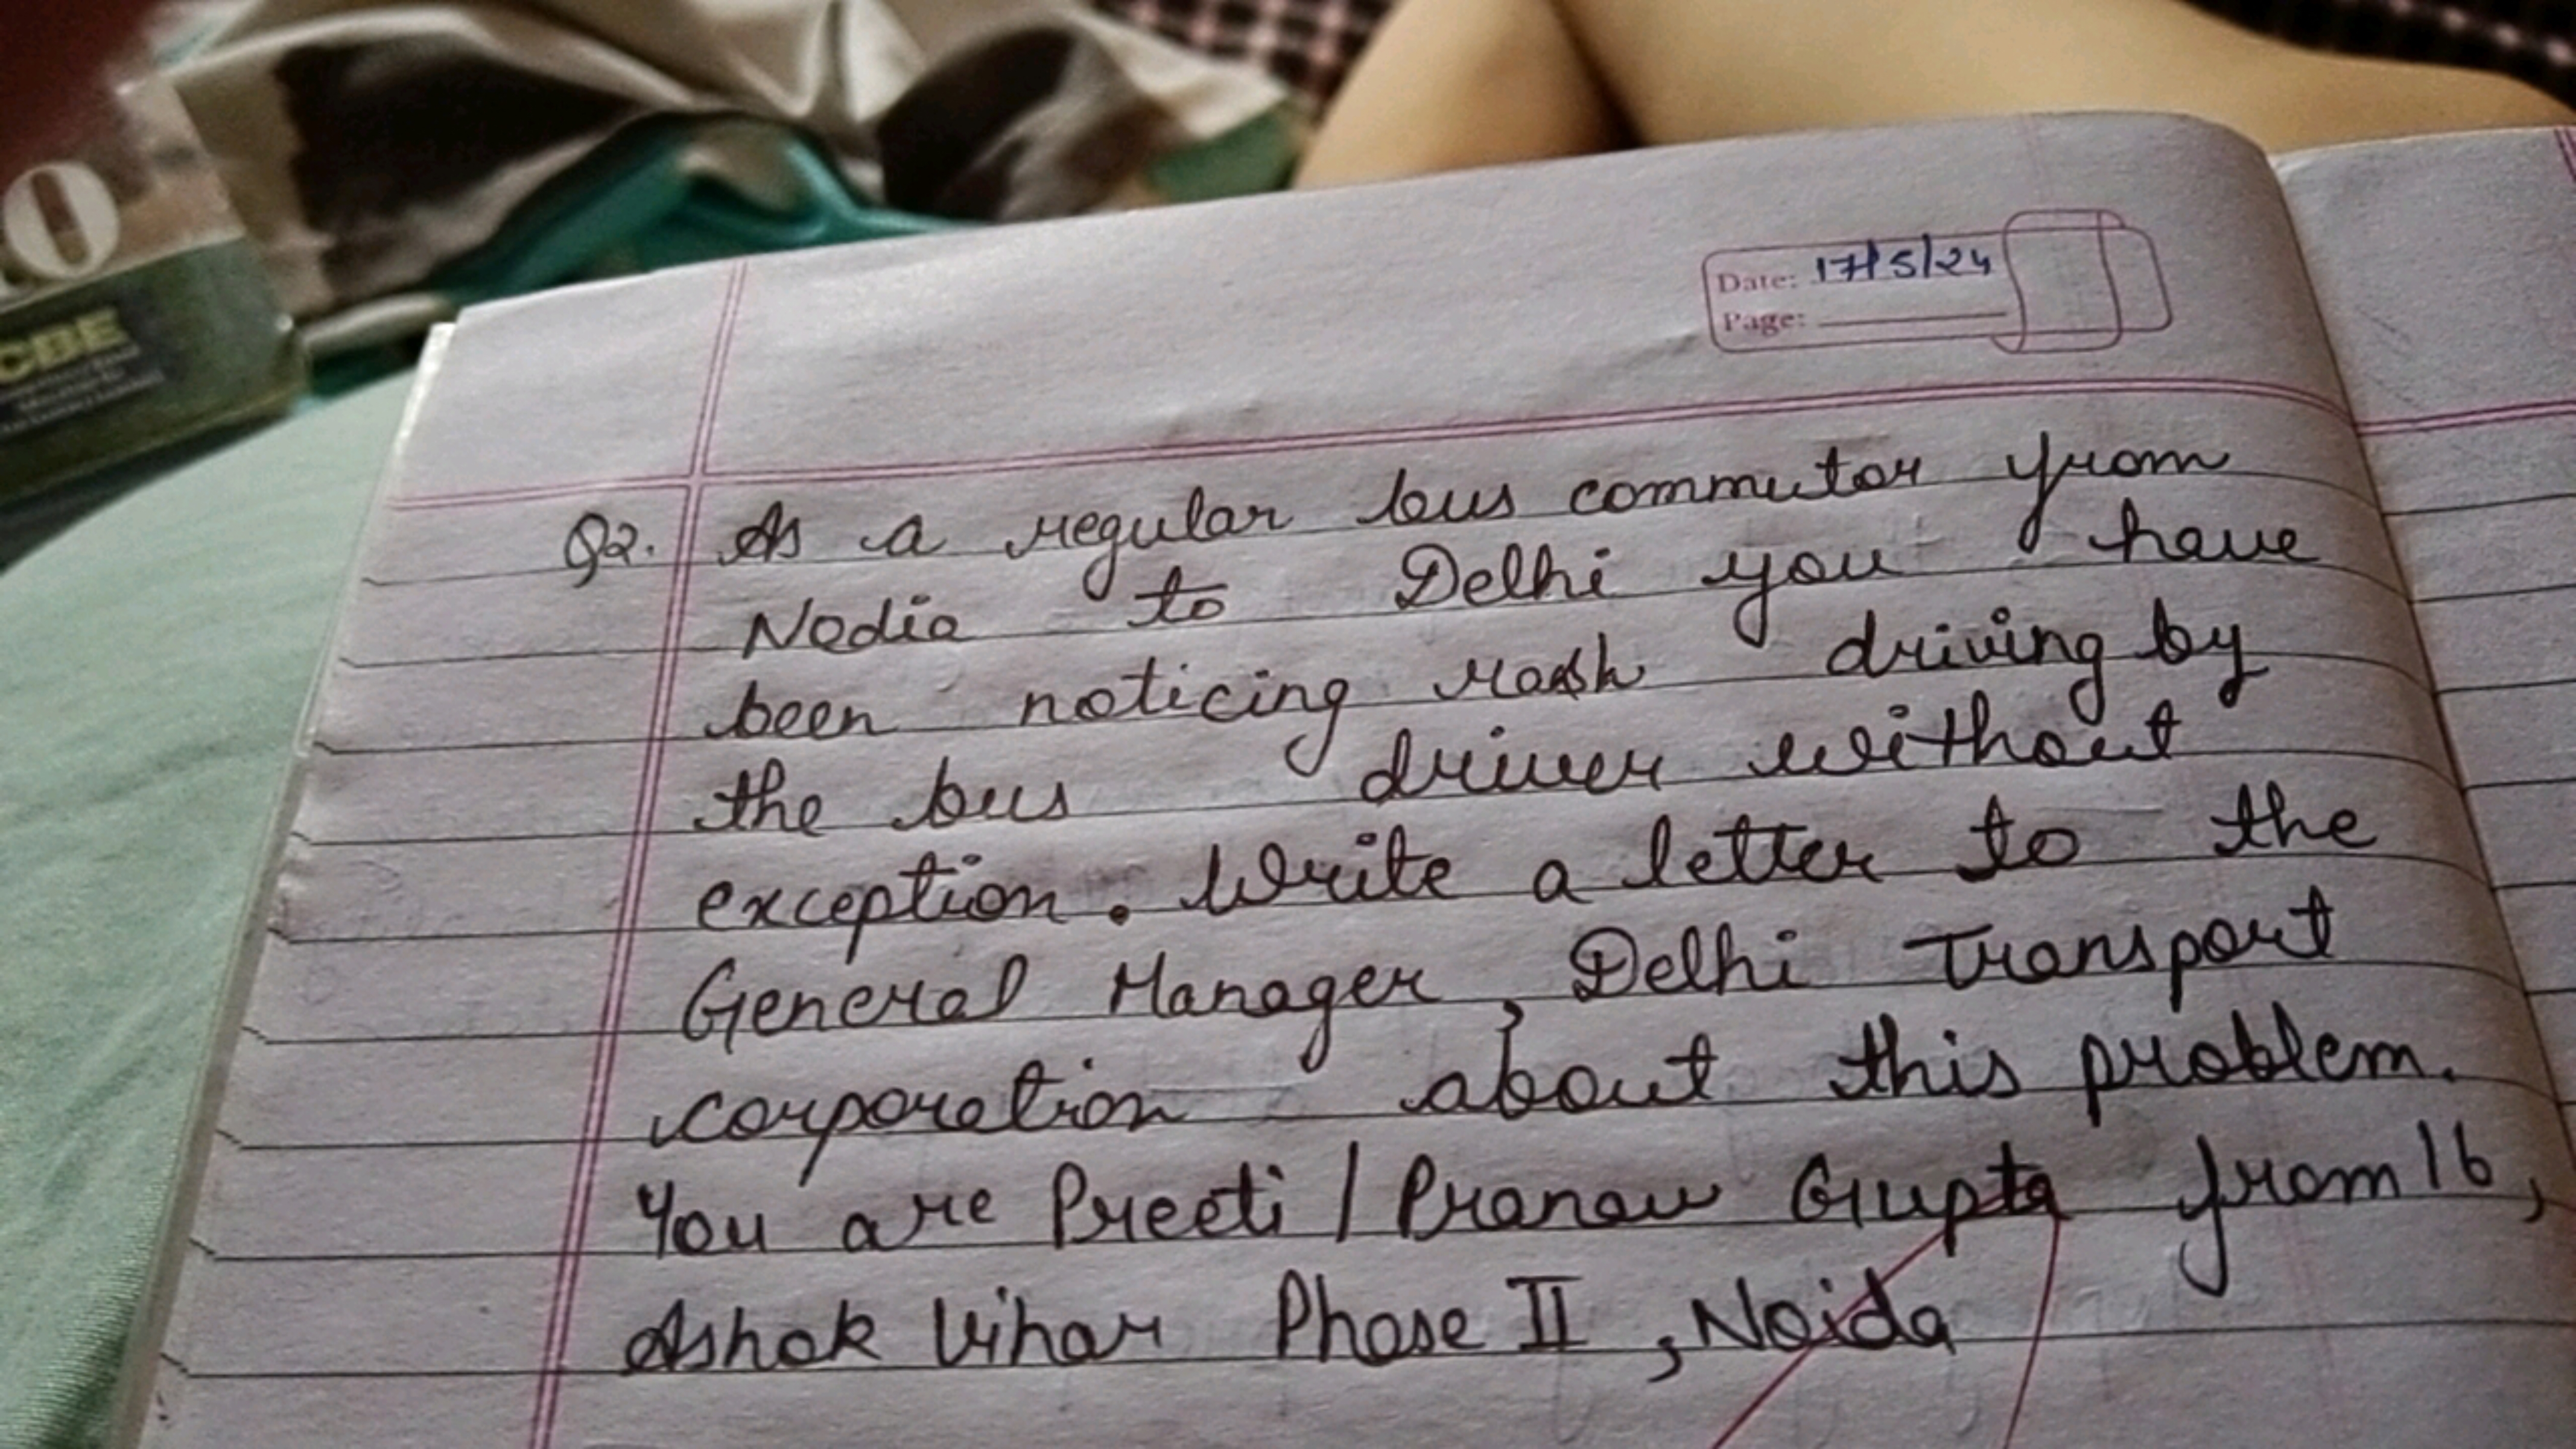 0
CBE
Date: 17/5/24
Page:
Q2. As a regular bus commutor from
Nodia to Delhi you have
been noticing rash driving by
the bus driver without
exception. Write a letter to the
General Manager, Delhi Transport
corporation about this problem.
You are Preeti / Pranav Gupta from 16,
Ashok Vihar Phase II, Noida